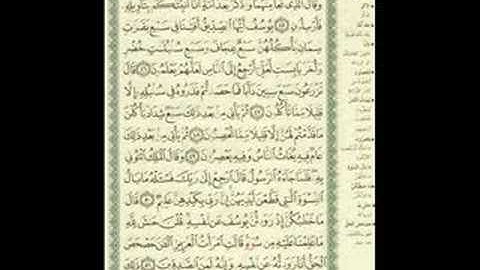 وَقَالَ ٱلَّذِى نَجَا مِنْهُمَا وَٱدَّكَرَ بَعْدَ أُمَّةٍ أَنَا۠ أُنَبِّئُكُم بِتَأْوِيلِهِۦ
فَأَرْسِلُونِ ﴿٤٥﴾ يُوسُفُ أَيُّهَا ٱلصِّدِّيقُ أَفْتِنَا فِى سَبْعِ بَقَرَٰتٍ
سِمَانٍ يَأْكُلُهُنَّ سَبْعٌ عِجَافٌ وَسَبْعِ سُنۢبُلَٰتٍ خُضْرٍ
وَأُخَرَ يَابِسَٰتٍ لَّعَلِّىٓ أَرْجِعُ إِلَى ٱلنَّاسِ لَعَلَّهُمْ يَعْلَمُونَ ﴿٤٦﴾ قَالَ
تَزْرَعُونَ سَبْعَ سِنِينَ دَأَبًا فَمَا حَصَدتُّمْ فَذَرُوهُ فِى سُنۢبُلِهِۦٓ إِلَّا
قَلِيلًا مِّمَّا تَأْكُلُونَ ﴿٤٧﴾ ثُمَّ يَأْتِى مِنۢ بَعْدِ ذَٰلِكَ سَبْعٌ شِدَادٌ يَأْكُلْنَ
مَا قَدَّمْتُمْ لَهُنَّ إِلَّا قَلِيلًا مِّمَّا تُحْصِنُونَ ﴿٤٨﴾ ثُمَّ يَأْتِى مِنۢ بَعْدِ ذَٰلِكَ
عَامٌ فِيهِ يُغَاثُ ٱلنَّاسُ وَفِيهِ يَعْصِرُونَ ﴿٤٩﴾ وَقَالَ ٱلْمَلِكُ ٱئْتُونِى
بِهِۦ فَلَمَّا جَآءَهُ ٱلرَّسُولُ قَالَ ٱرْجِعْ إِلَىٰ رَبِّكَ فَسْـَٔلْهُ مَا بَالُ
ٱلنِّسْوَةِ ٱلَّٰتِى قَطَّعْنَ أَيْدِيَهُنَّ إِنَّ رَبِّى بِكَيْدِهِنَّ عَلِيمٌ ﴿٥٠﴾ قَالَ
مَا خَطْبُكُنَّ إِذْ رَٰوَدتُّنَّ يُوسُفَ عَن نَّفْسِهِۦ قُلْنَ حَٰشَ لِلَّهِ
مَا عَلِمْنَا عَلَيْهِ مِن سُوٓءٍ قَالَتِ ٱمْرَأَتُ ٱلْعَزِيزِ ٱلْـَٰٔنَ حَصْحَصَ
ٱلْحَقُّ أَنَا۠ رَٰوَدتُّهُۥ عَن نَّفْسِهِۦ وَإِنَّهُۥ لَمِنَ ٱلصَّٰدِقِينَ ﴿٥١﴾ ذَٰلِكَ